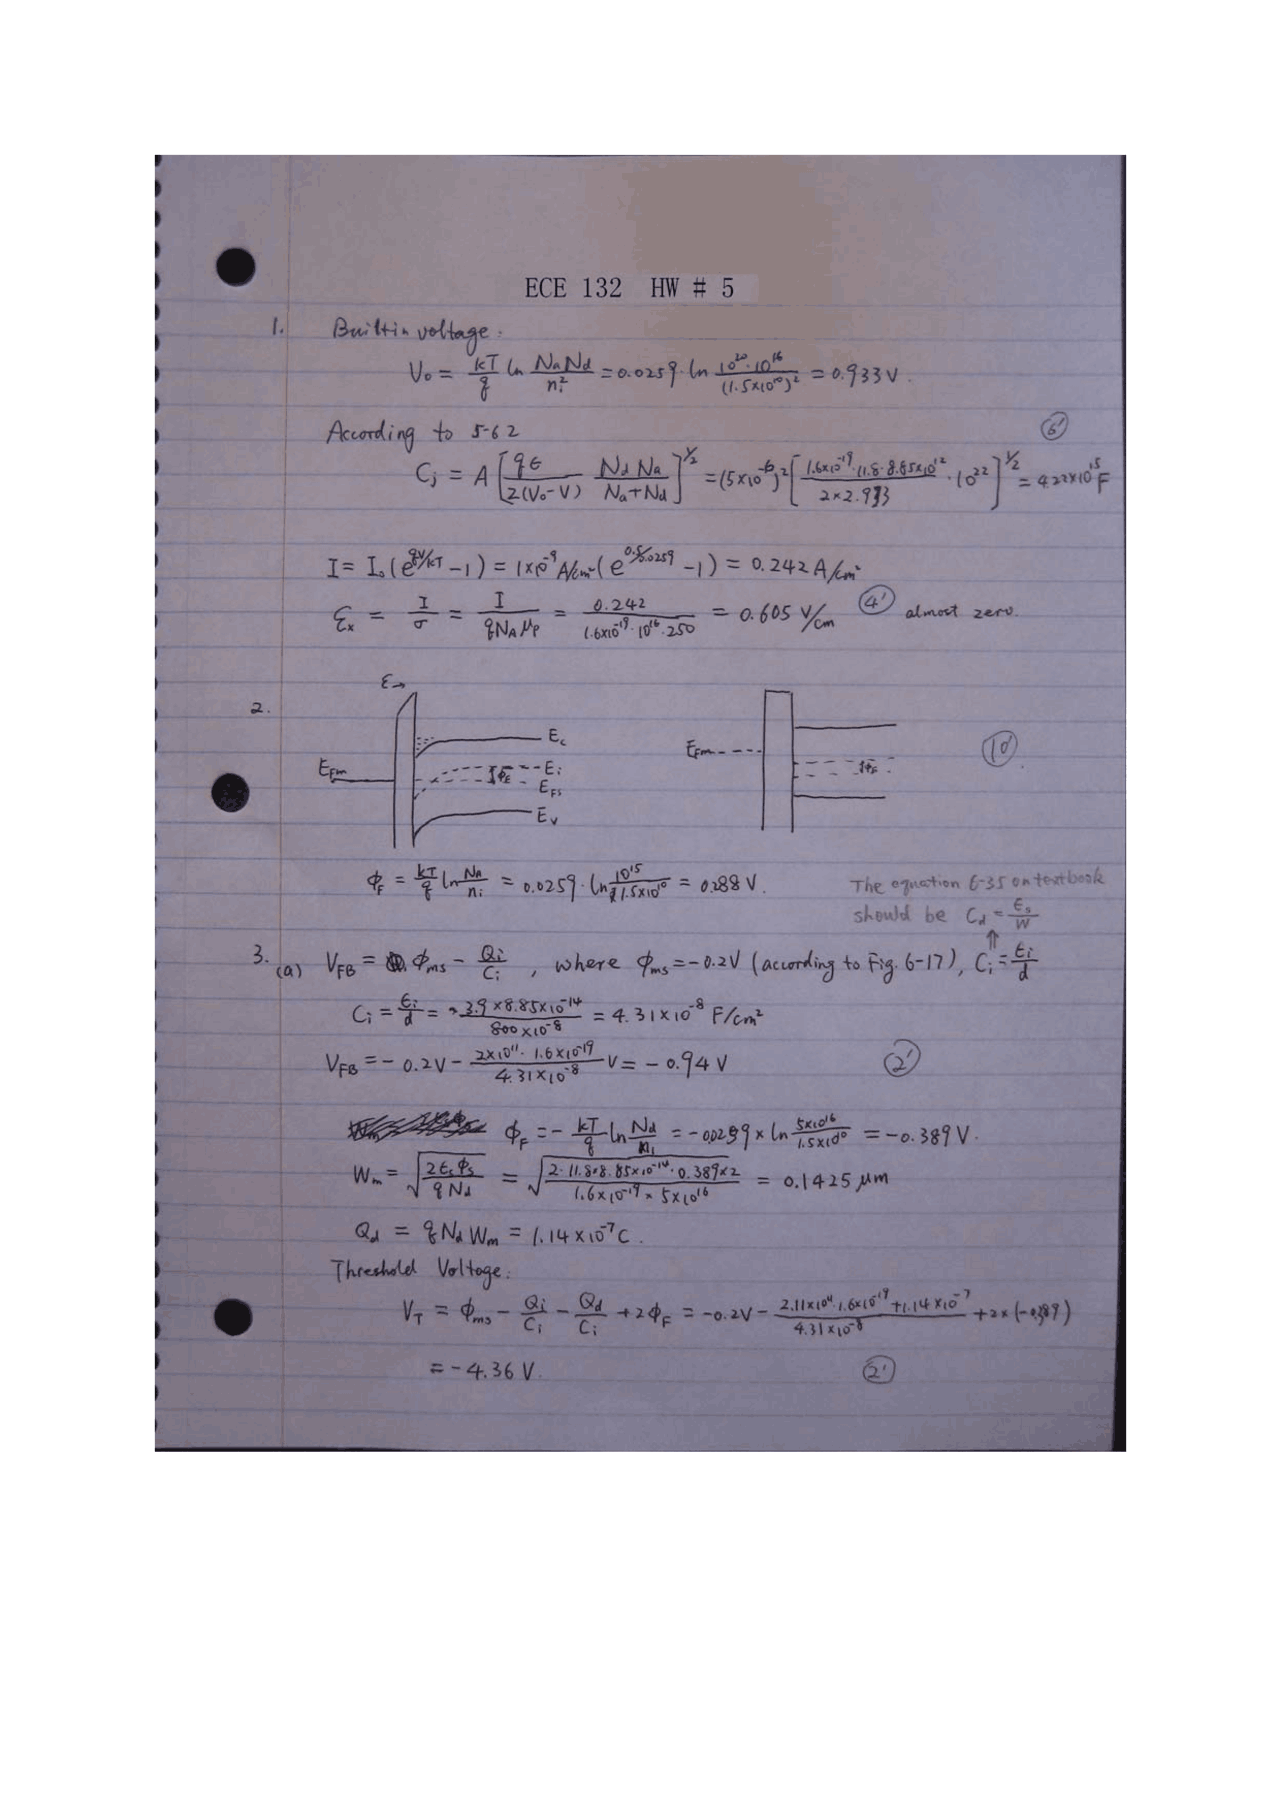 ECE 132 HW # 5
1. Built in voltage:
V₀ = kT/q ln NaNd/nᵢ² = 0.0259 · ln 10²⁰·10¹⁶/(1.5×10¹⁰)² = 0.933 V.
According to 5-62
6'
Cⱼ = A [qϵ/2(V₀-V) NdNa/Na+Nd]^½ = (5×10⁻⁶)² [1.6×10⁻¹⁹·11.8·8.85×10⁻¹²/2×2.933 · 10²²]^½ = 4.22×10⁻¹⁵ F
I = I₀(e^qV/kT - 1) = 1×10⁻⁹ A/cm² (e^0.5/0.0259 - 1) = 0.242 A/cm²
Ɛx = I/σ = I/qNAμp = 0.242/1.6×10⁻¹⁹·10¹⁶·250 = 0.605 V/cm 4' almost zero.
2.
Ɛ→
EFm
Ec
Ei
ΦF
EFs
Ev
EFm
ΦF
10'
ΦF = kT/q ln Na/nᵢ = 0.0259 · ln 10¹⁵/1.5×10¹⁰ = 0.288 V.
The equation 6-35 on textbook
should be Cd = ϵs/W
⇑
3. (a) VFB = Φms - Qi/Ci , where Φms = -0.2V (according to Fig. 6-17), Ci = ϵi/d
Ci = ϵi/d = 3.9×8.85×10⁻¹⁴/800×10⁻⁸ = 4.31×10⁻⁸ F/cm²
VFB = - 0.2V - 2×10¹¹·1.6×10⁻¹⁹/4.31×10⁻⁸ V = - 0.94 V 2'
ΦF = - kT/q ln Nd/ni = -0.0259 × ln 5×10¹⁶/1.5×10¹⁰ = -0.389 V.
Wm = √(2ϵsΦs/qNd) = √(2·11.8·8.85×10⁻¹⁴·0.389×2/1.6×10⁻¹⁹×5×10¹⁶) = 0.1425 μm
Qd = qNdWm = 1.14×10⁻⁷ C.
Threshold Voltage:
VT = Φms - Qi/Ci - Qd/Ci + 2ΦF = -0.2V - 2.11×10¹¹·1.6×10⁻¹⁹+1.14×10⁻⁷/4.31×10⁻⁸ + 2×(-0.389)
= - 4.36 V. 2'